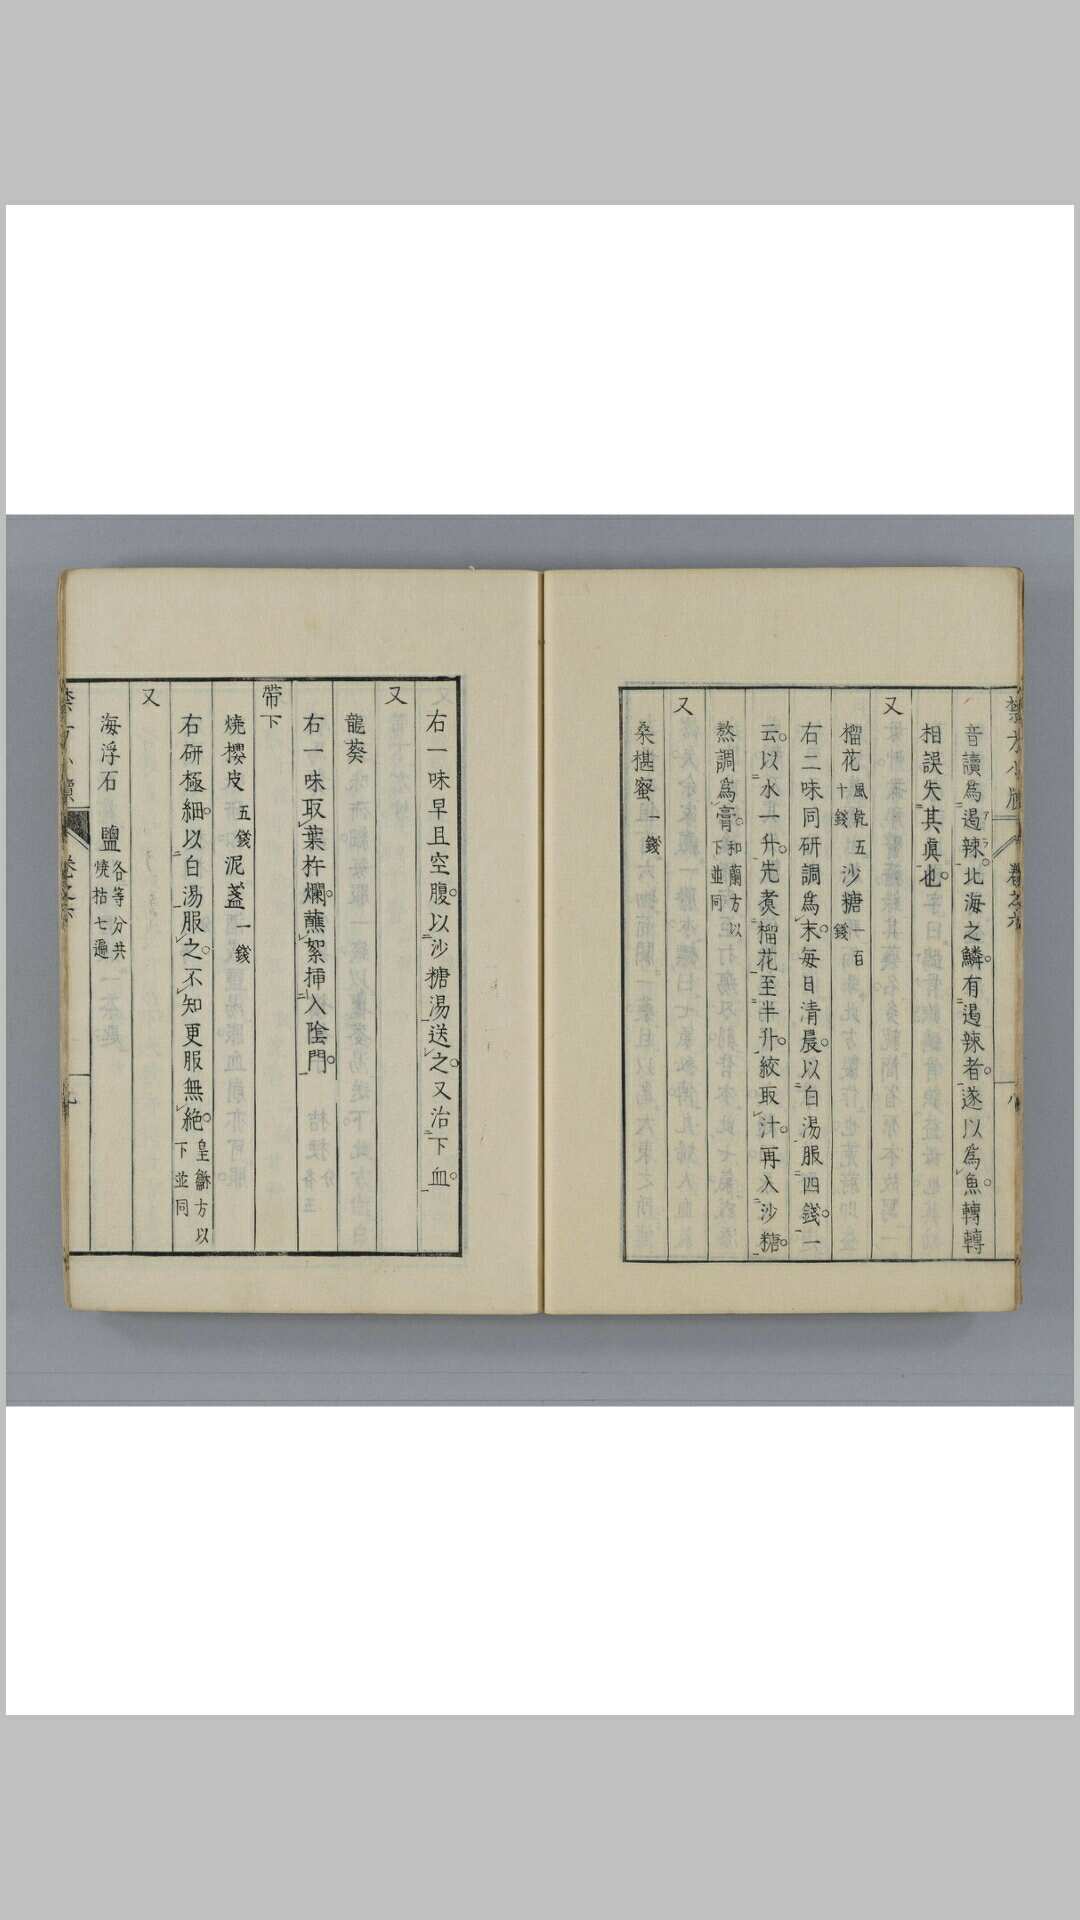 音讀爲遏辣北海之鱗有遏辣者遂以爲魚轉轉
相誤失其眞也
又
榴花風乾五十錢沙糖一百錢
右二味同研調爲末每日清晨以白湯服四錢一
云以水一升先煑榴花至半升絞取汁再入沙糖
熬調爲膏和蘭方以下並同
又
桑椹蜜一錢
右一味早且空腹以沙糖湯送之又治下血
又
龍葵
右一味取葉杵爛蘸絮揷入陰門
帶下
燒櫻皮五錢泥䓝一錢
右研極細以白湯服之不知更服無絶皇龢方以下並同
又
海浮石 鹽各等分共燒枯七遍